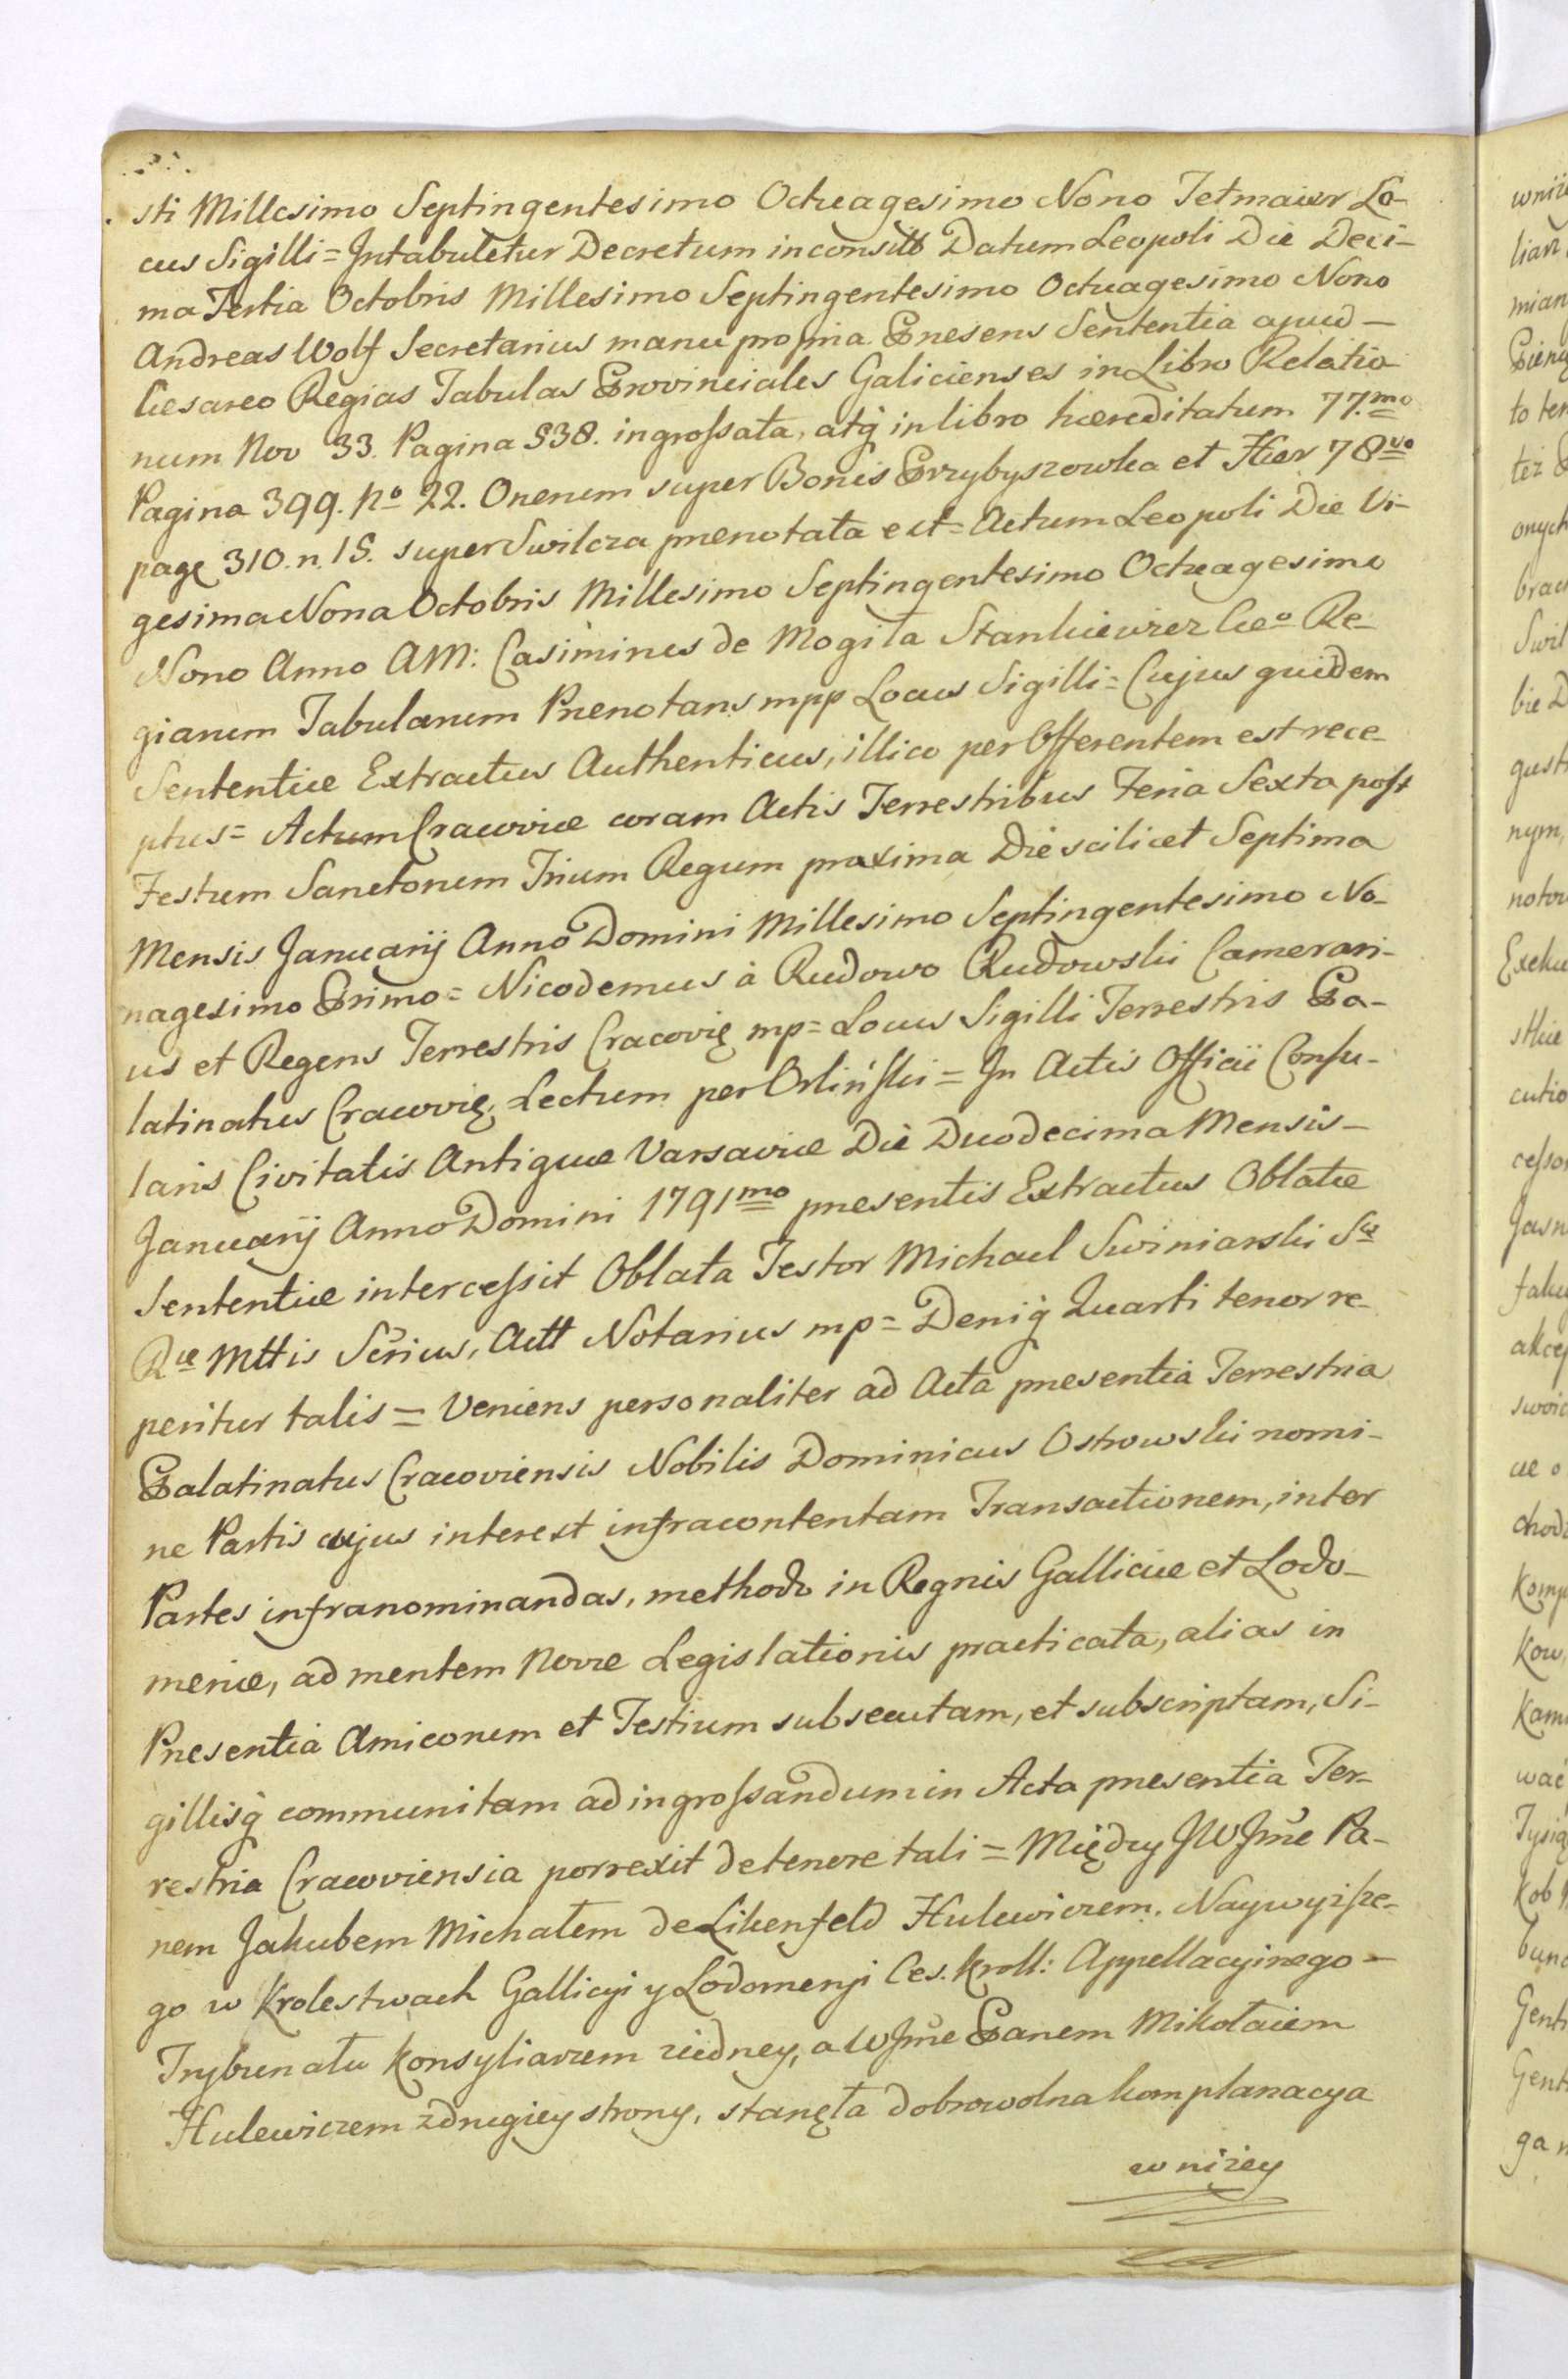 sti Millesimo Septingentesimo Octuagesimo Nono Tetmaier Lo-
cus Sigilli = Intabuletur Decretum in consillo Datum Leopoli Die Deci-
ma Tertia Octobris Millesimo Septingentesimo Octuagesimo Nono
Andreas Wolf Secretarius manu propria Presens Sententia apud -
Cesareo Regias Tabulas Provinciales Galicienses in Libro Relatio
num Nov 33. Pagina 538. ingrossata, atq; in libro hæreditatum 77.mo
Pagina 399. No 22. Onerum super Bonis Przybyszowka et Hær 78vo
page 310. n. 15. super Swilcza prenotata est = Actum Leopoli Die Vi-
gesima Nona Octobris Millesimo Septingentesimo Octuagesimo
Nono Anno AM: Casimirus de Mogiła Stankiewicz Cæo Re-
giarum Tabularum Prenotans mpp Locus Sigilli = Cujus quidem
Sententiæ Extractus Authenticus, illico per Offerentem est rece-
ptus = Actum Cracoviæ coram Actis Terrestribus Feria Sexta post
Festum Sanctorum Trium Regum proxima Die scilicet Septima
Mensis Januarij Anno Domini Millesimo Septingentesimo No-
nagesimo Primo = Nicodemus à Rudowo Rudowski Camerari-
us et Regens Terrestris Cracovię mp = Locus Sigilli Terrestris Pa-
latinatus Cracovię, Lectum per Orlinski = In Actis Officii Consu-
laris Civitatis Antiquæ Varsaviæ Die Duodecima Mensis -
Januarij Anno Domini 1791mo presentis Extractus Oblatæ
Sententiæ intercessit Oblata Testor Michael Swiniarski Sæ
Ræ Mttis Sērius, Actt Notarius mp = Deniq; Quarti tenor re-
peritur talis = Veniens personaliter ad Acta presentia Terrestria
Palatinatus Cracoviensis Nobilis Dominicus Ostrowski nomi-
ne Partis cujus interest infracontentam Transactionem, inter
Partes infranominandas, methodo in Regnis Galliciæ et Lodo-
meriæ, ad mentem Novæ Legislationis practicata, alias in
Presentia Amicorum et Testium subsecutam, et subscriptam, Si-
gillisq; communitam ad ingrossandum in Acta presentia Ter-
restria Cracoviensia porrexit de tenore tali = Między JWJm̄e Pa-
nem Jakubem Michałem de Likenfeld Hulewiczem, Naywyzsze-
go w Krolestwach Gallicyi y Lodomeryi Ces. Kroll: Appellacyinego -
Trybunału Konsyliarzem ziedney, a WJm̄e Panem Mikołaiem
Hulewiczem zdrugiey strony, stanęła dobrowolna komplanacya
w nizey